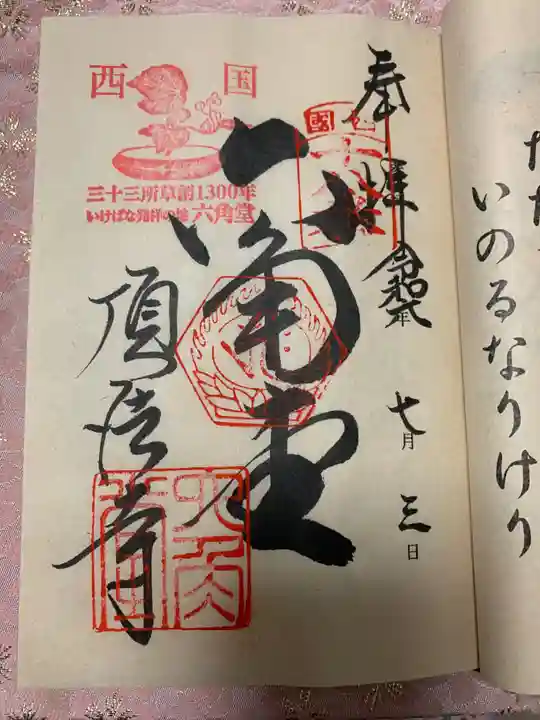 奉拝
令和六年
七月三日
西国
三十三所草創1300年
いけばな発祥の地 六角堂
六角堂
頂法寺
いのるなりけり